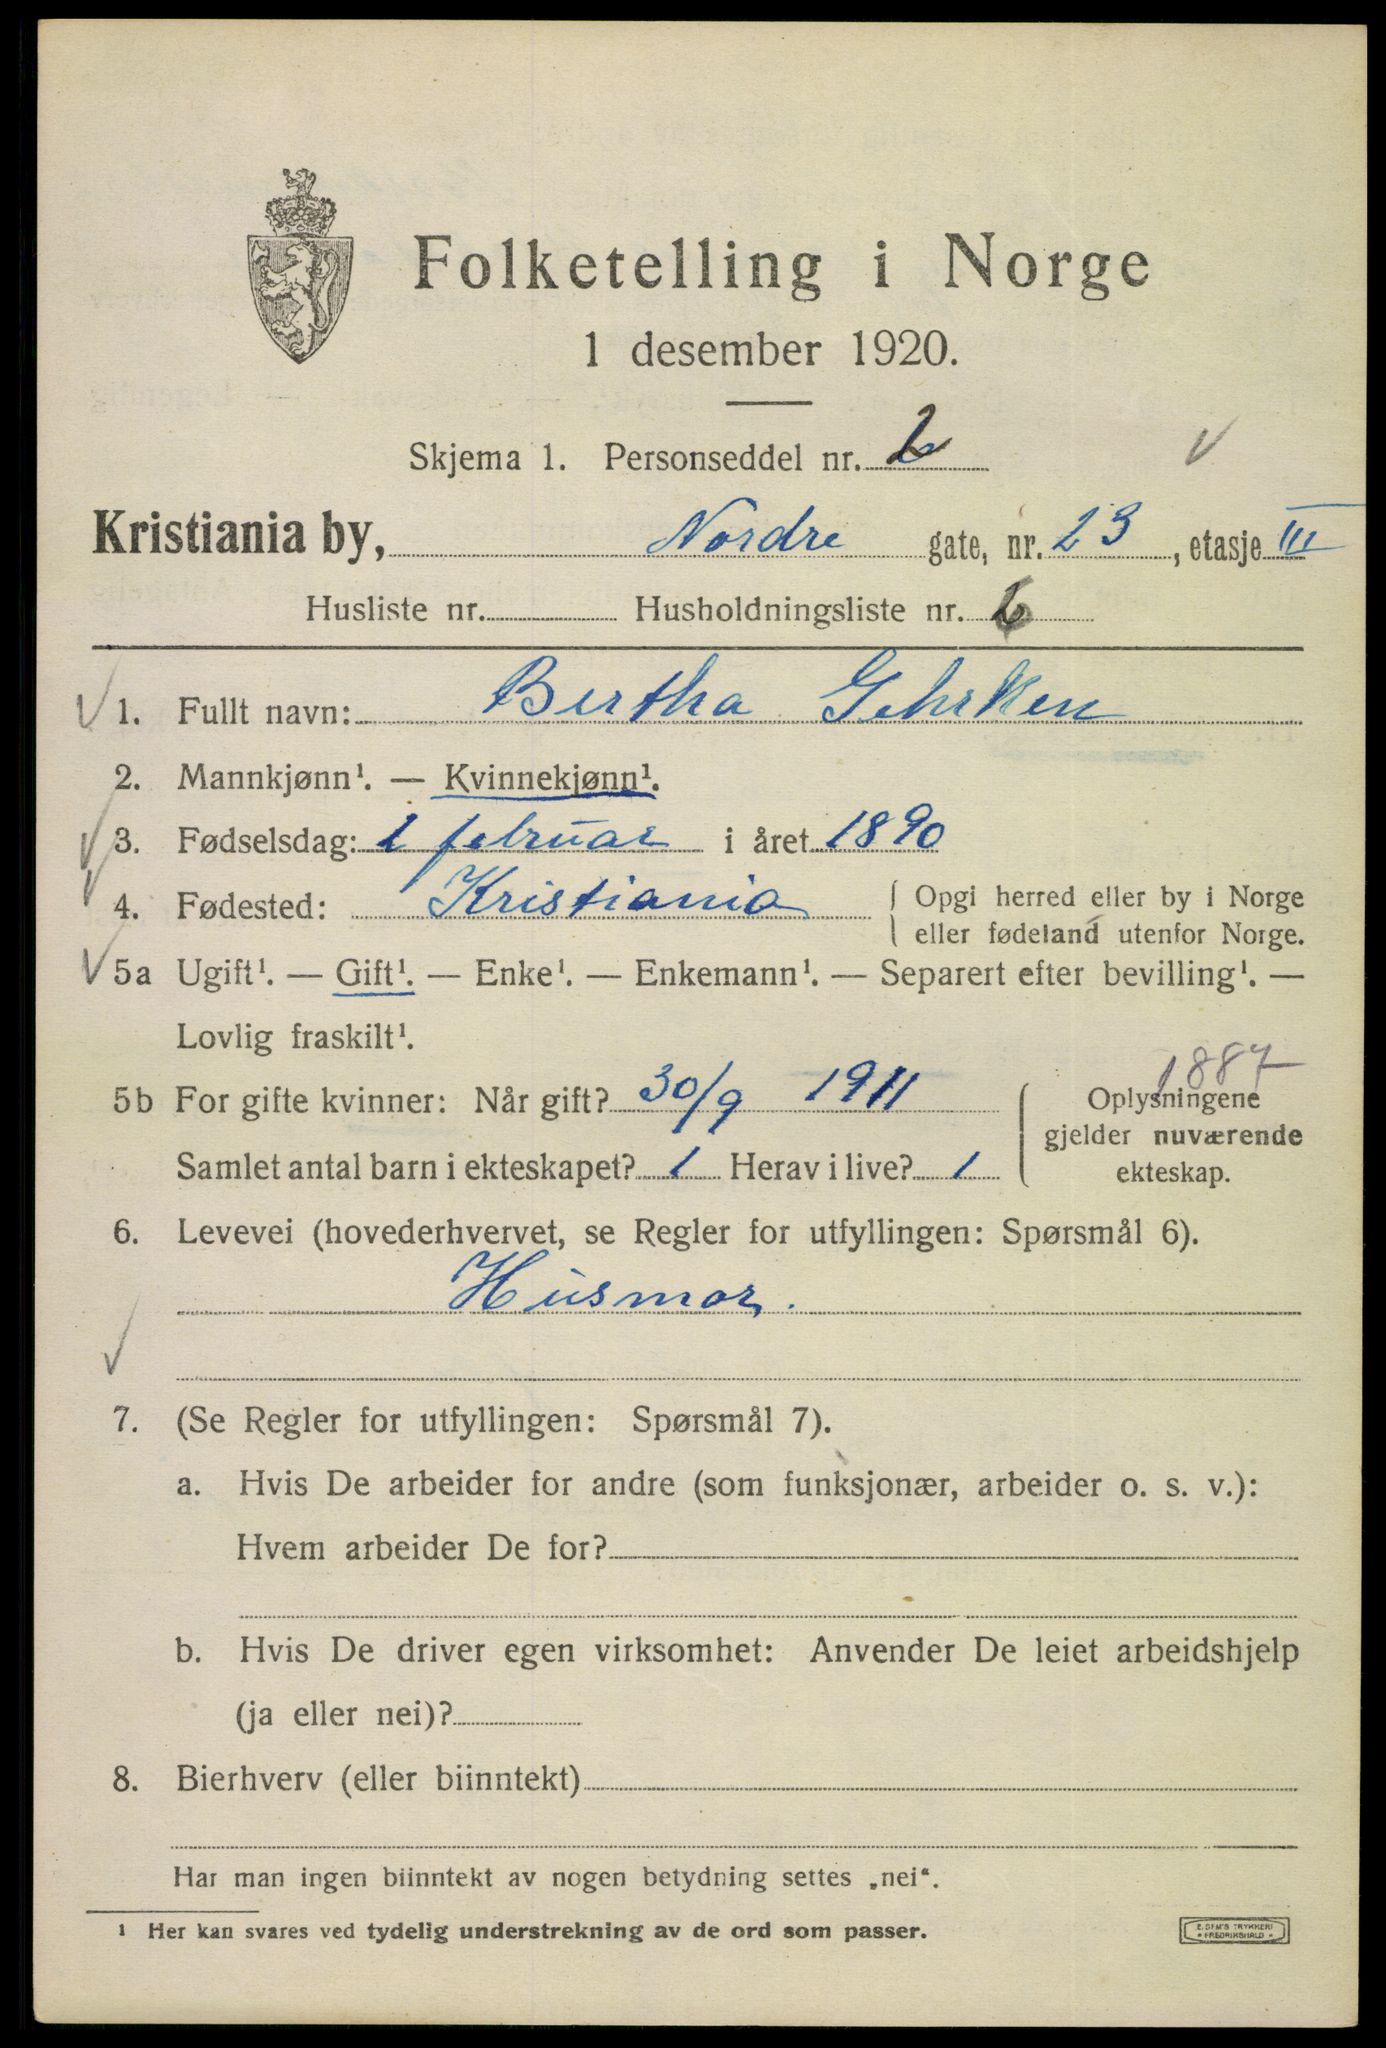 Folketelling i Norge
1 desember 1920.
Skjema 1. Personseddel nr. 2
Kristiania by, Nordre gate, nr. 23, etasje III
Husliste nr. Husholdningsliste nr. 6
1. Fullt navn: Bertha Gehrken
2. Mannkjønn¹. — Kvinnekjønn¹.
3. Fødselsdag: 1 februar i året 1890
4. Fødested: Kristiania { Opgi herred eller by i Norge
eller fødeland utenfor Norge.
5a Ugift¹. — Gift¹. — Enke¹. — Enkemann¹. — Separert efter bevilling¹. —
Lovlig fraskilt¹.
1887
5b For gifte kvinner: Når gift? 30/9 1911 { Oplysningene
gjelder nuværende
Samlet antal barn i ekteskapet? 1 Herav i live? 1 ekteskap.
6. Levevei (hovederhvervet, se Regler for utfyllingen: Spørsmål 6).
Husmor.
7. (Se Regler for utfyllingen: Spørsmål 7).
a. Hvis De arbeider for andre (som funksjonær, arbeider o. s. v.):
Hvem arbeider De for?
b. Hvis De driver egen virksomhet: Anvender De leiet arbeidshjelp
(ja eller nei)?
8. Bierhverv (eller biinntekt)
Har man ingen biinntekt av nogen betydning settes „nei“.
¹ Her kan svares ved tydelig understrekning av de ord som passer.
E. SEM'S TRYKKERI
FREDRIKSHALD